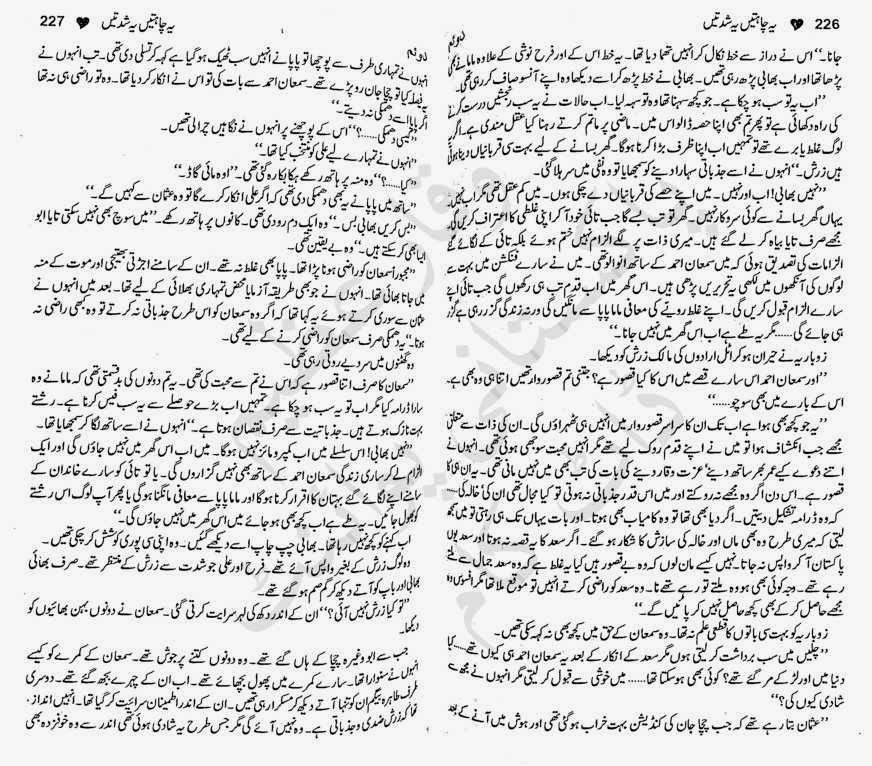 226 یہ چاہتیں یہ شدتیں
جانا۔" اس نے دراز سے خط نکال کر انہیں تھما دیا تھا۔ یہ خط اس کے اور فرح نوشی کے علاوہ ماما نے بھی
پڑھا تھا اور اب بھابی پڑھ رہی تھیں۔ بھابی نے خط پڑھ کر اسے دیکھا وہ اپنے آنسو صاف کر رہی تھی۔
"اب یہ تو سب ہو چکا ہے۔ جو کچھ سہنا تھا وہ تو سہہ لیا۔ اب حالات نے یہ سب رنجشیں درست کرنے
کی راہ دکھائی ہے تو پھر تم بھی اپنا حصہ ڈالو اس میں۔ ماضی پر ماتم کرتے رہنا کیا عقل مندی ہے اگر
لوگ غلط یا برے تھے تو تمہیں اب اپنا ظرف بڑا کرنا ہوگا۔ گھر بسانے کے لیے بہت سی قربانیاں دینا ہوتی
ہیں زرش۔" انہوں نے اسے جذباتی سہارا دینے کو سمجھایا تو وہ نفی میں سر ہلا گئی۔
"نہیں بھابی! اب اور نہیں۔ میں اپنے حصے کی قربانیاں دے چکی ہوں۔ میں کم عقل تھی مگر اب نہیں۔
یہاں گھر بسانے سے کوئی سروکار نہیں۔ گھر تو تب بسے گا جب تائی خود آ کر اپنی غلطی کا اعتراف کریں گی۔
مجھے صرف تایا بیاہ کر لے گئے ہیں۔ میری ذات پر لگے الزام نہیں ختم ہوئے بلکہ تائی کے لگائے گئے
الزامات کی تصدیق ہوئی کہ میں سمعان احمد کے ساتھ انوالو تھی۔ میں نے سارے فنکشن میں بہت سے
لوگوں کی آنکھوں میں لکھی یہ تحریریں پڑھی ہیں۔ اس گھر میں اب قدم تب ہی رکھوں گی جب تائی اپنے
سارے الزام قبول کریں گی۔ اپنے غلط رویے کی معافی ماما پاپا سے مانگیں گی ورنہ زندگی گزر رہی ہے گزر
ہی جائے گی......مگر یہ طے ہے اب اس گھر میں نہیں جانا۔"
زوباریہ نے حیران ہو کر اٹل ارادوں کی مالک زرش کو دیکھا۔
"اور سمعان احمد اس سارے قصے میں اس کا کیا قصور ہے؟ جتنی تم قصوروار تھیں اتنا ہی وہ بھی ہے۔
اس کے بارے میں بھی سوچو......"
"یہ جو کچھ بھی ہوا ہے اب تک ان کا سراسر قصوروار میں انہیں ہی ٹھہراؤں گی۔ ان کی ذات سے متعلق
مجھے جب انکشاف ہوا تو میں نے اپنے قدم روک لیے تھے مگر انہیں محبت سوجھی ہوئی تھی۔ انہوں نے
اتنے دعوے کیے عمر بھر ساتھ دینے' عزت و وقار دینے کی بات کی تب بھی میں نہیں مانی تھی۔ یہ ان ہی کا
قصور ہے۔ اس دن اگر وہ مجھے نہ روکتے اور میں اس قدر جذباتی نہ ہوتی تو کیا مجال تھی ان کی' خالہ کی......
کہ وہ ڈرامہ تشکیل دیتیں۔ اگر دیا بھی تھا تو وہ کامیاب بھی ہوتا۔ اور بات یہاں تک ہی رہتی تو میں سمجھ
لیتی کہ میری طرح وہ بھی ماں اور خالہ کی سازش کا شکار ہو گئے۔ اگر سعد کا یہ قصہ نہ ہوتا اور سعد یوں
پاکستان آ کر واپس نہ جاتا۔ نہیں کیسے مان لوں کہ وہ بے قصور ہیں کیا یہ غلط ہے کہ وہ سعد جمال سے ملتے
رہے تھے۔ وجہ کوئی بھی ہو وہ ملتے تو رہے تھے نا۔ وہ سعد کو راضی کرتے انہیں تو موقع ملا تھا مگر افسوس وہ
مجھے حاصل کر کے بھی کچھ حاصل نہیں کر پائیں گے۔"
زوباریہ کو بہت سی باتوں کا قطعی علم نہ تھا۔ وہ سمعان کے حق میں کچھ بھی نہ کہہ سکی تھیں۔
"چلیں میں سب برداشت کر لیتی ہوں مگر سعد کے انکار کے بعد یہ سمعان احمد ہی کیوں تھے......کیا
دنیا میں اور لڑکے مر گئے تھے؟ کوئی بھی ہو سکتا تھا......میں خوشی سے قبول کر لیتی مگر انہوں نے مجھ سے
شادی کیوں کی؟"
"عثمان بتا رہے تھے کہ جب چچا جان کی کنڈیشن بہت خراب ہو گئی تھی اور ہوش میں آنے کے بعد
227 یہ چاہتیں یہ شدتیں
انہوں نے تمہاری طرف سے پوچھا تو پاپا نے انہیں سب ٹھیک ہو گیا ہے کہہ کر تسلی دی تھی۔ تب انہوں نے
یہ فیصلہ کیا تو چچا جان رو پڑے تھے۔ سمعان احمد سے بات کی تو اس نے انکار کر دیا تھا۔ وہ تو راضی ہی نہ تھا
اگر پاپا اسے دھمکی نہ دیتے۔"
"کیسی دھمکی......؟" اس کے پوچھنے پر انہوں نے نگاہیں چرا لی تھیں۔
"انہوں نے تمہارے لیے علی کو منتخب کیا تھا۔"
"کیا......؟" وہ منہ پر ہاتھ رکھے ہکا بکا رہ گئی تھی۔ "او مائی گاڈ۔"
"ساتھ میں پاپا نے یہ بھی دھمکی دی تھی کہ اگر علی انکار کرے گا تو وہ عثمان سے کہیں گے۔"
"بس کریں بھابی بس۔" وہ ایک دم رو دی تھی۔ کانوں پر ہاتھ رکھے۔ "میں سوچ بھی نہیں سکتی تایا ابو
ایسا بھی کر سکتے ہیں۔" وہ بے یقین تھی۔
"مجبوراً سمعان کو راضی ہونا پڑا تھا۔ پاپا بھی غلط نہ تھے۔ ان کے سامنے اجڑتی بھتیجی اور موت کے منہ
میں جاتا بھائی تھا۔ انہوں نے جو بھی طریقہ آزمایا محض تمہاری بھلائی کے لیے تھا۔ بعد میں انہوں نے
عثمان سے سوری کرتے ہوئے یہ کہا تھا کہ اگر وہ سمعان کو اس طرح جذباتی نہ کرتے تو وہ کبھی راضی نہ
ہوتا۔ "یہ دھمکی صرف سمعان کو راضی کرنے کے لیے تھی۔
وہ گھٹنوں میں سر دیے روتی رہی تھی۔
"سمعان کا صرف اتنا قصور ہے کہ اس نے تم سے محبت کی تھی۔ یہ تم دونوں کی بدقسمتی تھی کہ ماما نے وہ
سارا ڈرامہ کیا مگر اب تو یہ سب ہو چکا ہے۔ تمہیں اب بڑے حوصلے سے یہ سب فیس کرنا ہے۔ رشتے
بہت نازک ہوتے ہیں۔ جذباتیت سے صرف نقصان ہوتا ہے۔" انہوں نے اسے ساتھ لگا کر سمجھایا تھا۔
"نہیں بھابی! اس سلسلے میں اب کمپرومائز نہیں ہوگا۔ میں اب اس گھر میں نہیں جاؤں گی اور ایک
الزام لے کر ساری زندگی سمعان احمد کے ساتھ بھی نہیں گزاروں گی۔ یا تو تائی کو سارے خاندان کے
سامنے اپنے لگائے گئے بہتان کا اقرار کرنا ہوگا اور ماما پاپا سے معافی مانگنا ہوگی یا پھر آپ لوگ اس رشتے
کو بھول جائیں۔ یہ طے ہے اب کچھ بھی ہو جائے میں اس گھر میں نہیں جاؤں گی۔"
اب کہنے کو کچھ نہیں رہا تھا۔ بھابی چپ چاپ اسے دیکھے گئیں۔ وہ اپنی سی پوری کوشش کر چکی تھیں۔
وہ لوگ زرش کے بغیر واپس آئے تھے۔ فرح اور علی جو شدت سے زرش کے منتظر تھے۔ صرف بھابی
بھائی اور باپ کو آتے دیکھ کر گم صم ہو گئے تھے۔
"تو کیا زرش نہیں آئی؟" ان کے اندر دکھ کی لہر سرایت کرتی گئی۔ سمعان نے دونوں بہن بھائیوں کو
دیکھا۔
جب سے ابو وغیرہ چچا کے ہاں گئے تھے۔ وہ دونوں کتنے پرجوش تھے۔ سمعان کے کمرے کو کیسے
انہوں نے سنوارا تھا۔ سارے کمرے میں پھول بچھائے تھے۔ اب ان کے چہرے بجھ گئے تھے۔ دوسری
طرف طاہرہ بیگم ان کو تنہا آتے دیکھ کر مسکرا رہی تھیں۔ ان کے اندر اطمینان سرایت کر گیا تھا۔ انہیں اندازہ
تھا کہ زرش ضدی و جذباتی ہے۔ وہ نہیں آئے گی مگر جس طرح یہ شادی ہوئی تھی اندر سے وہ خوفزدہ بھی